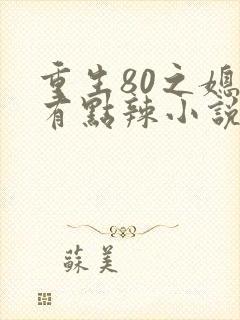 重生80之媳
有點辣小說
蘇美